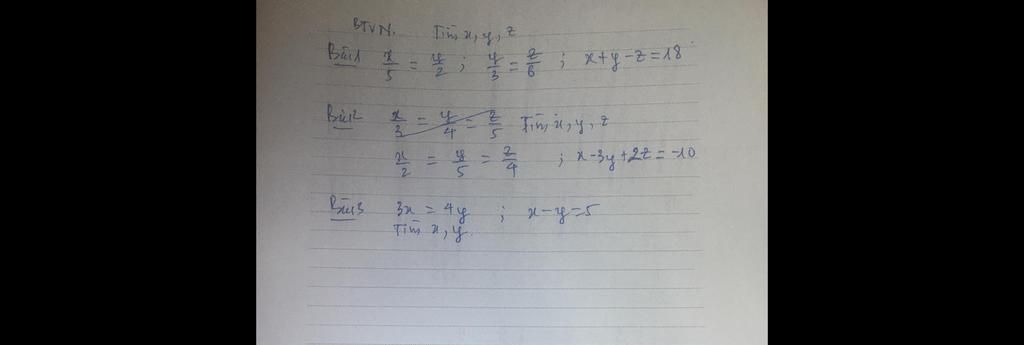 BTVN. Tìm x, y, z
Bài 1 x/5 = y/2 ; y/3 = z/6 ; x+y-z=18
Bài 2 x/3 = y/4 = z/5 Tìm x, y, z
x/2 = y/5 = z/4 ; x-3y+2z=-10
Bài 3 3x = 4y ; x-y=5
Tìm x, y.